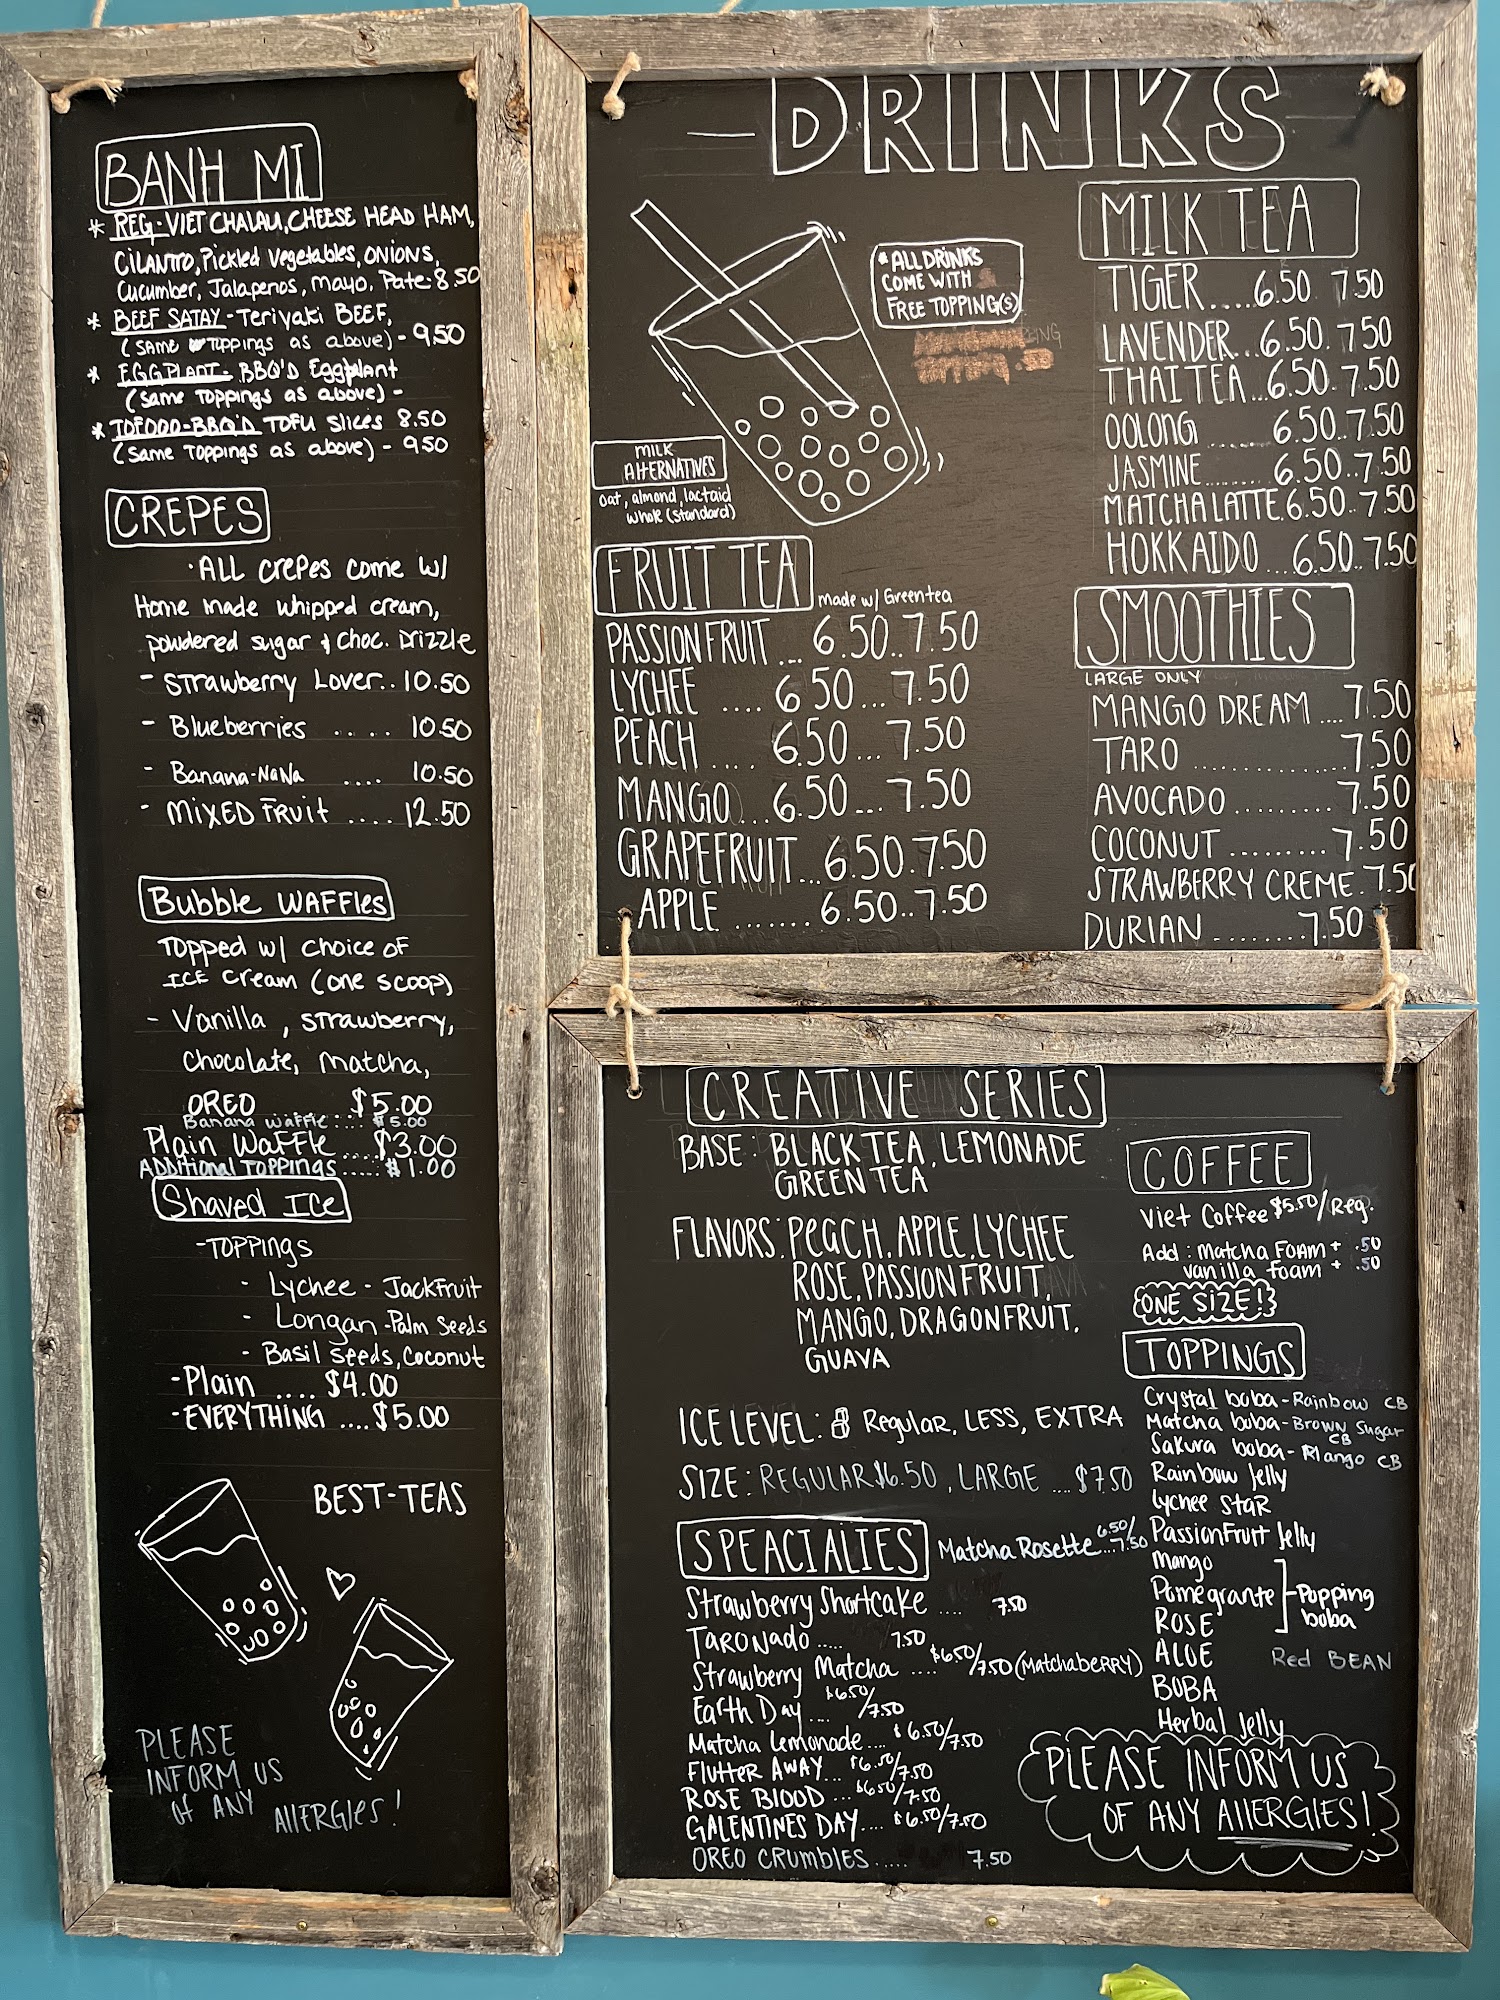 BANH MI
* REG - VIET CHALAU, CHEESE HEAD HAM,
CILANTRO, Pickled Vegetables, ONIONS,
Cucumber, Jalapenos, mayo, Pate: 8.50
* BEEF SATAY - Teriyaki BEEF,
(SAME Toppings as above) - 9.50
* EGGPLANT - BBQ'D Eggplant
(same Toppings as above) -
* TOFOOO-BBQ'D TOFU Slices 8.50
(Same Toppings as above) - 9.50
CREPES
· ALL crepes come w/
Home made whipped cream,
powdered sugar & choc. Drizzle
- Strawberry Lover.. 10.50
- Blueberries .... 10.50
- Banana-NaNa .... 10.50
- MIXED FRUIT .... 12.50
Bubble WAFFles
TOPPED w/ choice OF
ICE cream (one scoop)
- Vanilla, strawberry,
chocolate, Matcha,
OREO $5.00
Banana waffle .... $5.00
Plain Waffle ....$3.00
Additional Toppings .... $1.00
Shaved Ice
-TOPPINGS
- Lychee - Jackfruit
- Longan - Palm Seeds
- Basil seeds, Coconut
-Plain .... $4.00
-EVERYTHING ....$5.00
BEST-TEAS
PLEASE
INFORM US
of ANY Allergies!
DRINKS
* ALL DRINKS
COME WITH
FREE TOPPING(S)
MILK
AlTERNATIVES
oat, almond, lactaid
whole (standard)
FRUIT TEA made w/ Green tea
PASSION FRUIT ... 6.50..7.50
LYCHEE .... 6.50...7.50
PEACH .... 6.50...7.50
MANGO...6.50...7.50
GRAPEFRUIT...6.50.7.50
APPLE .......6.50..7.50
MILK TEA
TIGER.....6.50 7.50
LAVENDER...6.50. 7.50
THAI TEA...6.50.7.50
OOLONG ....... 6.50..7.50
JASMINE........6.50..7.50
MATCHA LATTE.6.50..7.50
HOKKAIDO ...6.50..7.50
SMOOTHIES
LARGE ONLY
MANGO DREAM ....7.50
TARO ..............7.50
AVOCADO.........7.50
COCONUT .........7.50
STRAWBERRY CREME.7.50
DURIAN ........7.50
CREATIVE SERIES
BASE: BLACK TEA, LEMONADE
GREEN TEA
FLAVORS: PEACH, APPLE, LYCHEE
ROSE, PASSION FRUIT,
MANGO, DRAGONFRUIT,
GUAVA
ICE LEVEL: Regular, LESS, EXTRA
SIZE: REGULAR $6.50, LARGE ....$7.50
SPEACIALIES
Matcha Rosette 6.50/...7.50
Strawberry Shortcake .... 7.50
TARONado..... 7.50
Strawberry Matcha ....$6.50/7.50 (MatchabERRY)
Earth Day .... $6.50/7.50
Matcha Lemonade.... $6.50/7.50
Flutter AWAY... $6.50/7.50
ROSE BlOOD ...$6.50/7.50
GALENTINES DAY.... $6.50/7.50
OREO CRUMBLES..... 7.50
COFFEE
Viet Coffee $5.50/Reg.
Add: Matcha FOAM + .50
vanilla foam + .50
ONE SIZE!
TOPPINGS
Crystal boba - Rainbow CB
Matcha boba - BROWN Sugar CB
Sakura boba - Mango CB
Rainbow Jelly
lychee staR
PassionFruit Jelly
mango
Pomegrante - Popping boba
ROSE
AlOE Red BEAN
BOBA
Herbal Jelly
PLEASE INFORM US
OF ANY AllERGIES!